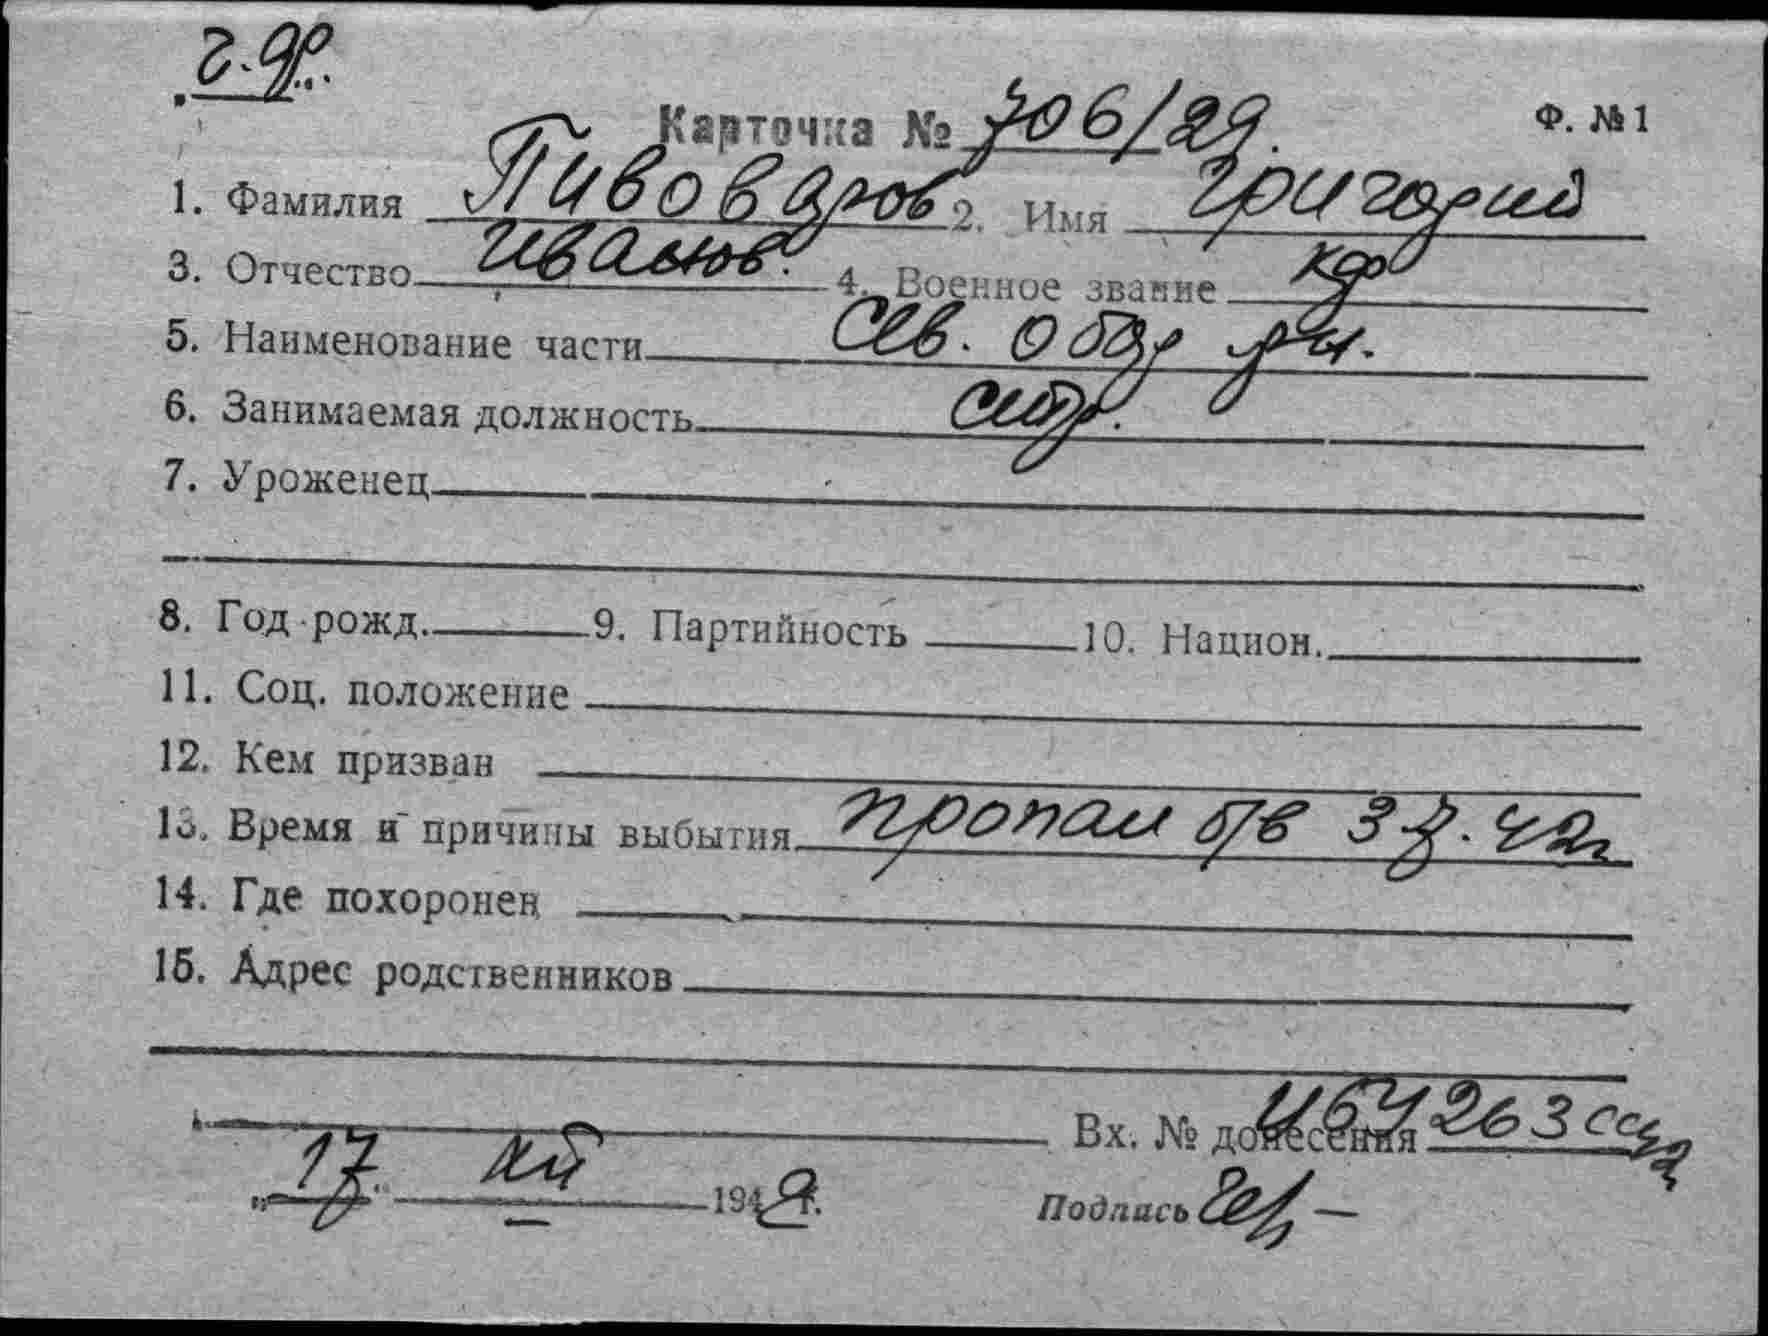 Карточка № 706/29. Ф. №1
1. Фамилия Пивоваров 2. Имя Григорий
3. Отчество Иванов. 4. Военное звание кф
5. Наименование части Сев. обор рн.
6. Занимаемая должность стр.
7. Уроженец
8. Год рожд. 9. Партийность 10. Национ.
11. Соц. положение
12. Кем призван
13. Время и причины выбытия пропал б/в 3 7. 42г
14. Где похоронен
15. Адрес родственников
Вх. № донесения 263
"17" XII 1942г.
Подпись